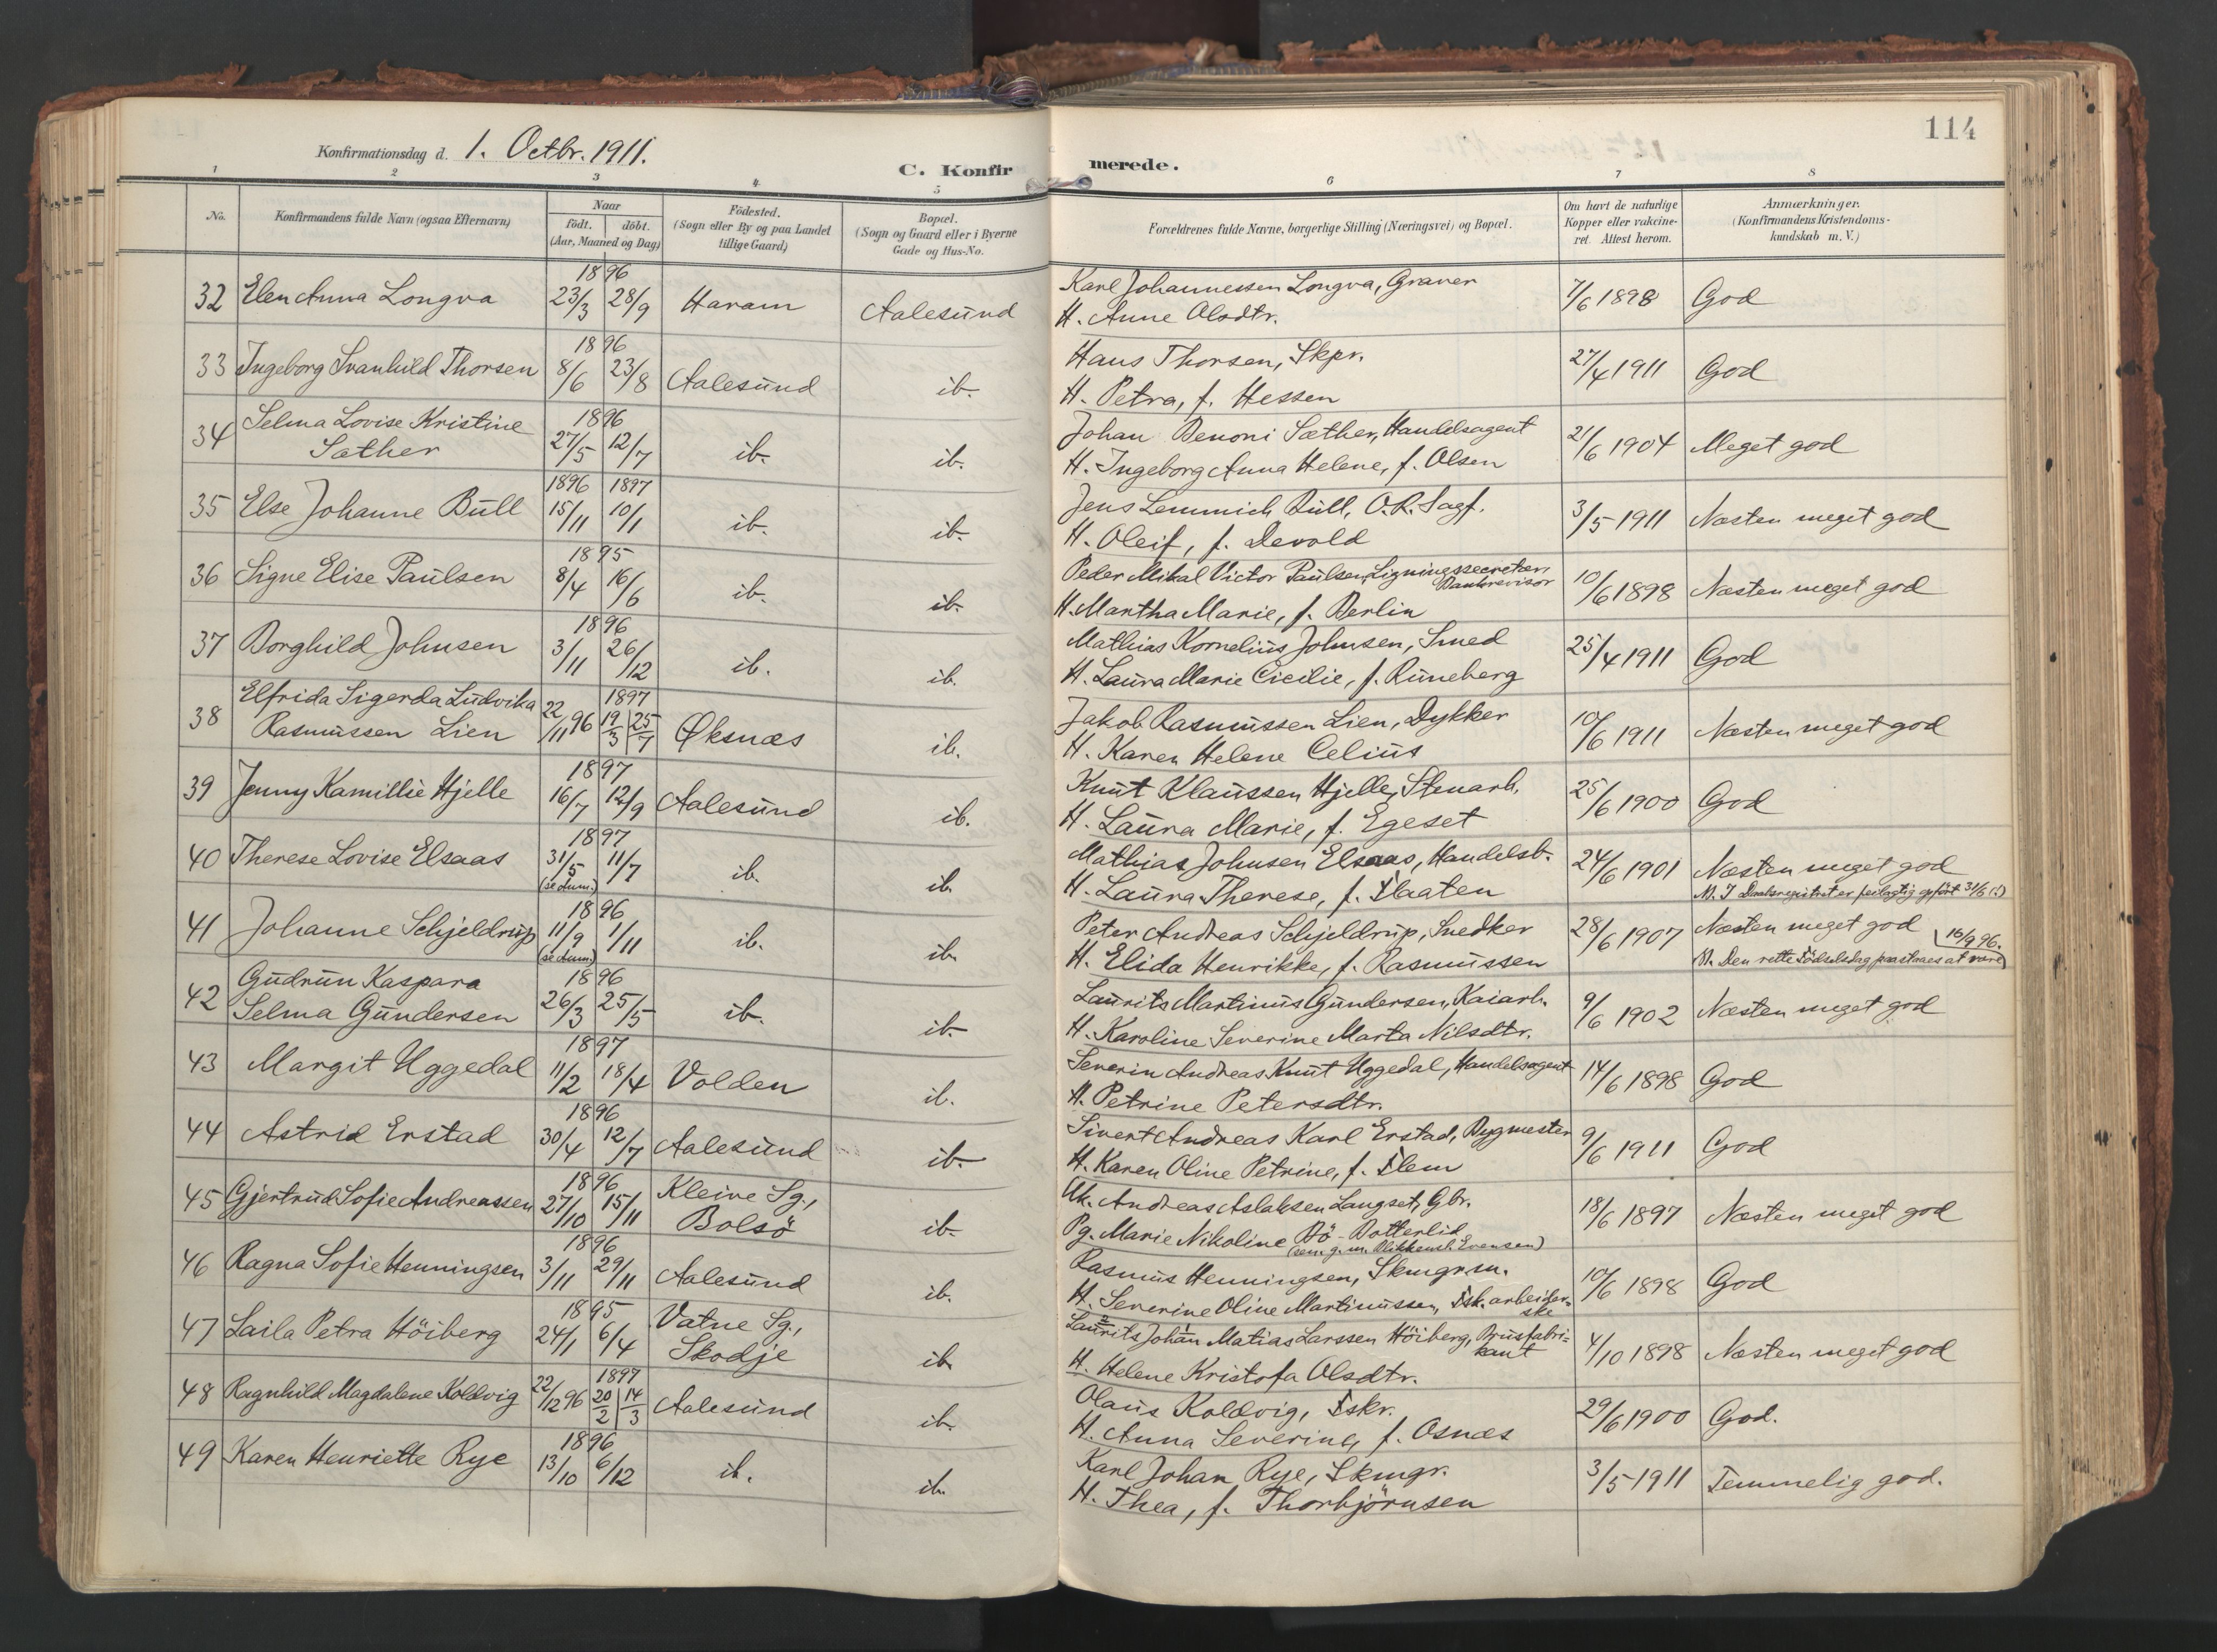 114
Konfirmationsdag d. 1. Octbr. 1911.
C. Konfirmerede.
1 2 3 4 5 6 7 8
No.
Konfirmandens fulde Navn (ogsaa Efternavn)
Naar
födt. döbt.
(Aar, Maaned og Dag)
Födested.
(Sogn eller By og paa Landet
tillige Gaard)
Bopæl.
(Sogn og Gaard eller i Byerne
Gade og Hus-No.
Forældrenes fulde Navne, borgerlige Stilling (Næringsvei) og Bopæl.
Om havt de naturlige
Kopper eller vakcine-
ret. Attest herom.
Anmærkninger.
(Konfirmandens Kristendoms-
kundskab m. V.)
1896
32 Elen Anna Longva 23/3 28/9 Haram Aalesund Karl Johannessen Longva, Graver 7/6 1898 God
H. Anne Olsdtr.
1896
33 Ingeborg Svanhild Thorsen 8/6 23/8 Aalesund ib. Hans Thorsen, Skpr. 27/4 1911 God
H. Petra, f. Hessen
34 Selma Lovise Kristine 1896
Sæther 27/5 12/7 ib. ib. Johan Benoni Sæther, Handelsagent 21/6 1904 Meget god
H. Ingeborg Anna Helene, f. Olsen
1896 1897
35 Else Johanne Bull 15/11 10/1 ib. ib. Jens Lemmich Bull, O.R. Sagf. 3/5 1911 Næsten meget god
H. Oleif, f. Devold
1895
36 Signe Elise Paulsen 8/4 16/6 ib. ib. Peder Mikal Victor Paulsen, Ligningssecretær, 10/6 1898 Næsten meget god
Bankrevisor
H. Martha Marie, f. Berlin
1896
37 Borghild Johnsen 3/11 26/12 ib. ib. Mathias Kornelius Johnsen, Smed 25/4 1911 God
H. Laura Marie Cicilie, f. Runeberg
38 Elfrida Sigerda Ludvika 1897
Rasmussen Lien 22/11 96 19/3 25/7 Øksnæs ib. Jakob Rasmussen Lien, Dykker 10/6 1911 Næsten meget god
H. Karen Helene Celius
1897
39 Jenny Kamillie Hjelle 16/7 12/9 Aalesund ib. Knut Klaussen Hjelle, Stenarb. 25/6 1900 God
H. Laura Marie, f. Egeset
1897
40 Therese Lovise Elsaas 31/5 11/7 ib. ib. Mathias Johnsen Elsaas, Handelsb. 24/6 1901 Næsten meget god
(se Anm.) H. Laura Therese, f. Flaaten M. I Daabsregistret er feilagtig opfört 31/6 (!)
1896
41 Johanne Schjeldrup 11/9 1/11 ib. ib. Peter Andreas Schjeldrup, Snedker 28/6 1907 Næsten meget god
(se Anm.) H. Elida Henrikke, f. Rasmussen (M. Den rette Födselsdag paastaaes at være 16/9 96.)
42 Gudrun Kaspara 1896
Selma Gundersen 26/3 25/5 ib. ib. Laurits Martinus Gundersen, Kaiarb. 9/6 1902 Næsten meget god
H. Karoline Severine Marta Nilsdtr.
1897
43 Margit Uggedal 11/2 18/4 Volden ib. Severin Andreas Knut Uggedal, Handelsagent 14/6 1898 God
H. Petrine Petersdtr.
1896
44 Astrid Erstad 30/4 12/7 Aalesund ib. Sivert Andreas Karl Erstad, Bygmester 9/6 1911 God
H. Karen Oline Petrine, f. Flem
1896
45 Gjertrud Sofie Andreassen 27/10 15/11 Kleive Sg., Bolsö ib. Uk. Andreas Aslaksen Langset, Gbr. 18/6 1897 Næsten meget god
Pg. Marie Nikoline Bö-Botterlid
(sen. g. m. Blikkensl. Evensen)
1896
46 Ragna Sofie Henningsen 3/11 29/11 Aalesund ib. Rasmus Henningsen, Skmgrsn. 10/6 1898 God
H. Severine Oline Martinussen, Fsk. arbeider-
ske
1895
47 Laila Petra Höiberg 24/1 6/4 Vatne Sg., Skodje ib. Laurits Johan Matias Larssen Höiberg, Brusfabri- 4/10 1898 Næsten meget god
kant
H. Helene Kristofa Olsdtr.
1897
48 Ragnhild Magdalene Koldvig 22/12 96 20/2 14/3 Aalesund ib. Olaus Koldvig, Fskr. 29/6 1900 God.
H. Anna Severine, f. Osnæs
1896
49 Karen Henriette Rye 13/10 6/12 ib. ib. Karl Johan Rye, Skmgr. 3/5 1911 Temmelig god.
H. Thea, f. Thorbjörnsen